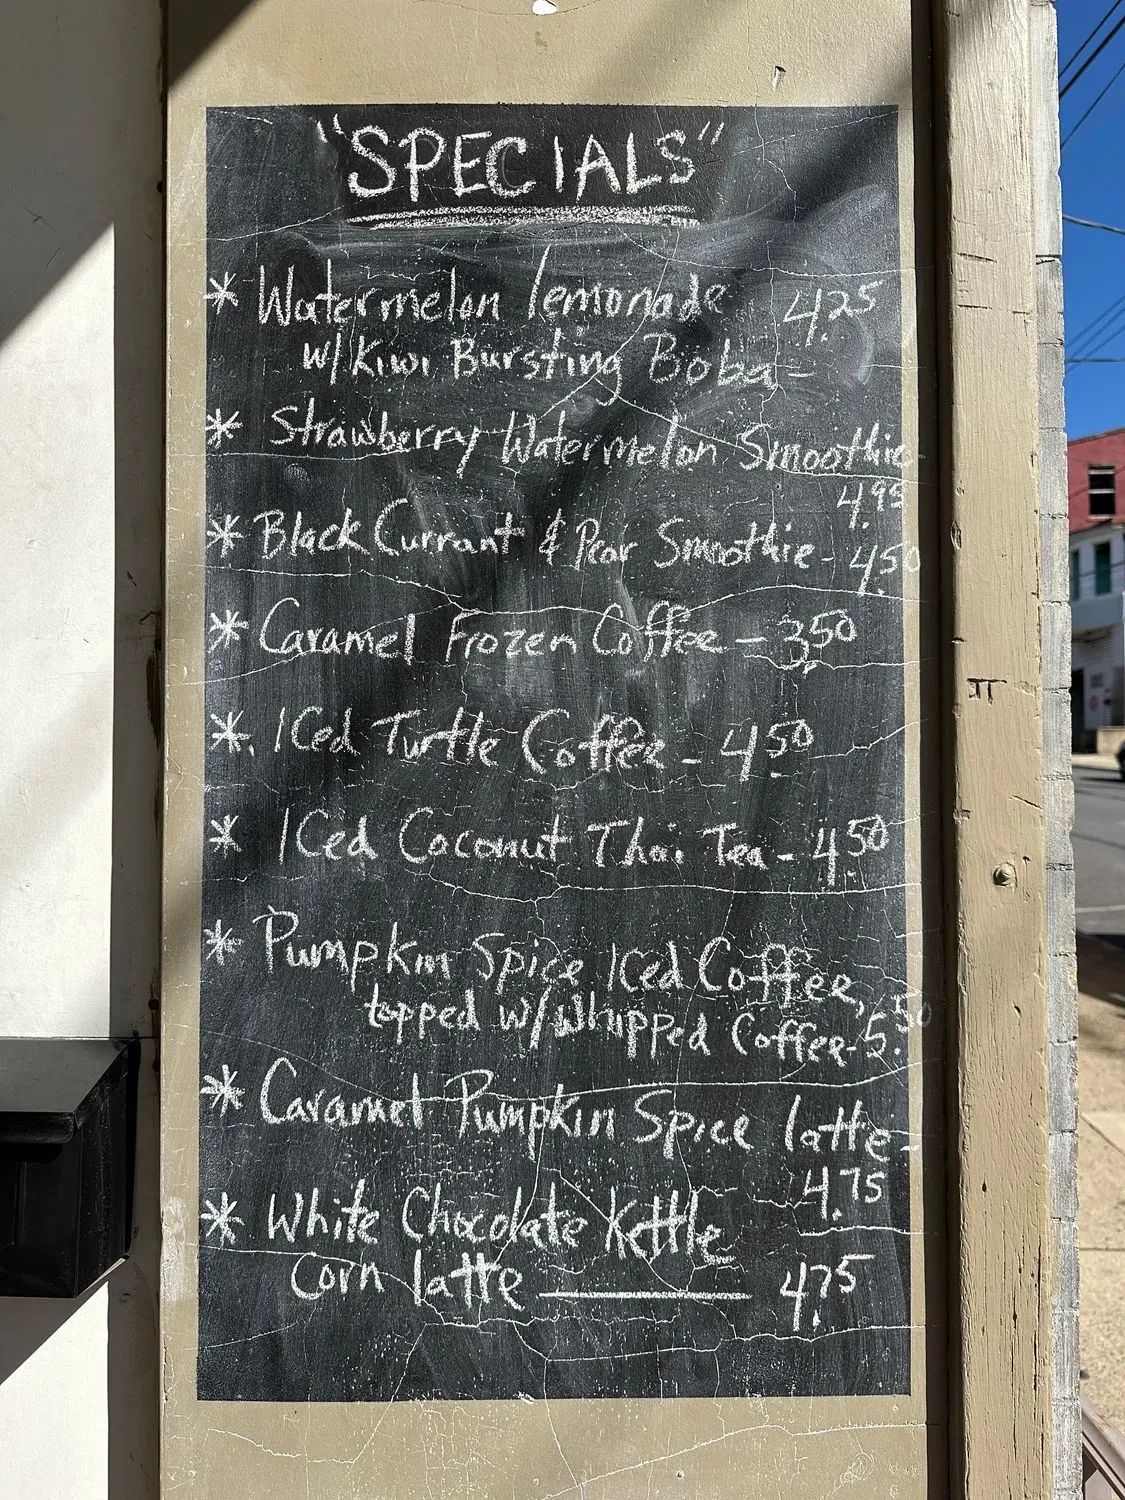 "SPECIALS"
* Watermelon lemonade 4.25
w/ Kiwi Bursting Boba -
* Strawberry Watermelon Smoothie
4.95
* Black Currant & Pear Smoothie - 4.50
* Caramel Frozen Coffee - 3.50
* Iced Turtle Coffee - 4.50
* Iced Coconut Thai Tea - 4.50
* Pumpkin Spice Iced Coffee,
topped w/ Whipped Coffee - 5.50
* Caramel Pumpkin Spice latte -
4.75
* White Chocolate Kettle
Corn latte ———— 4.75